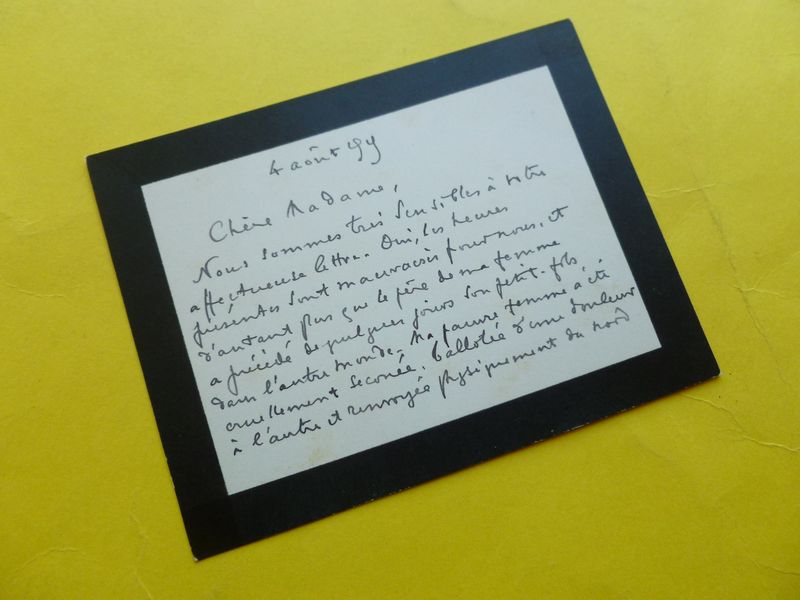 4 août 99
Chère Madame,
Nous sommes très sensibles à votre
affectueuse lettre. Oui, les heures
présentes sont mauvaises pour nous, et
d'autant plus que le père de ma femme
a précédé de quelques jours son petit-fils
dans l'autre monde. Ma pauvre femme a été
cruellement secouée, ballotée d'une douleur
à l'autre et renvoyée physiquement du nord